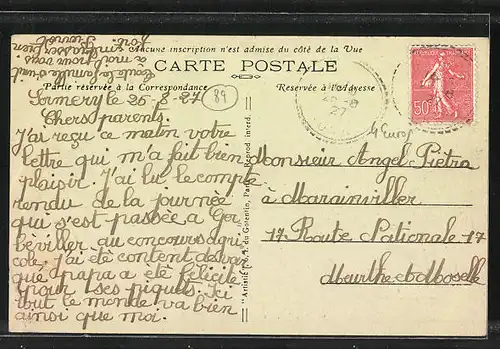 Aucune inscription n'est admise du côté de la Vue
CARTE POSTALE
Partie réservée à la Correspondance
Réservée à l'Adresse
Sormery le 26-8-27
89
Chers parents.
J'ai reçu ce matin votre
lettre qui m'a fait bien
plaisir. J'ai lu le compte
rendu de la journée
qui s'est passée a Ger
béviller au concours agri
cole, j'ai été content de voir
que papa a été félicité
pour ses piquets. Ici
tout le monde va bien
ainsi que moi.
toute la famille
Pierrot
Monsieur Angel Piètra
à Marainviller
17 Route Nationale 17
Meurthe et Moselle
4 Euros
50c
27